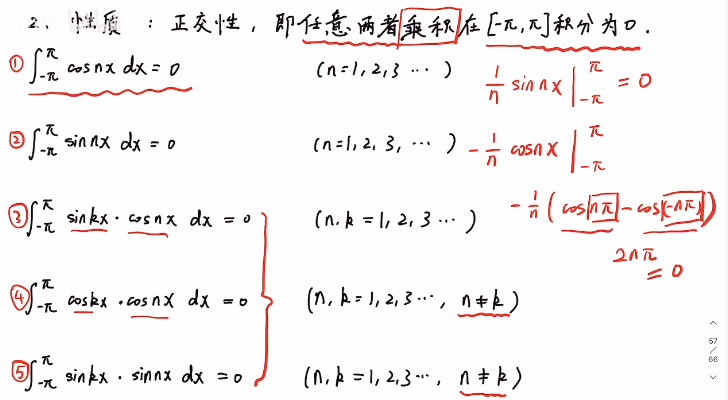 2、性质：正交性，即任意两者乘积在[-π,π]积分为0.
① ∫_{-π}^{π} cosnx dx = 0 (n=1,2,3…) 1/n sin nx |_{-π}^{π} = 0
② ∫_{-π}^{π} sinnx dx = 0 (n=1,2,3,…) -1/n cosnx |_{-π}^{π}
③ ∫_{-π}^{π} sinkx·cosnx dx = 0 (n.k=1,2,3…) -1/n (cos nπ - cos(-nπ))
2nπ
= 0
④ ∫_{-π}^{π} coskx·cosnx dx = 0 (n,k=1,2,3…, n≠k)
⑤ ∫_{-π}^{π} sinkx·sinnx dx = 0 (n,k=1,2,3…, n≠k)
57
/
66